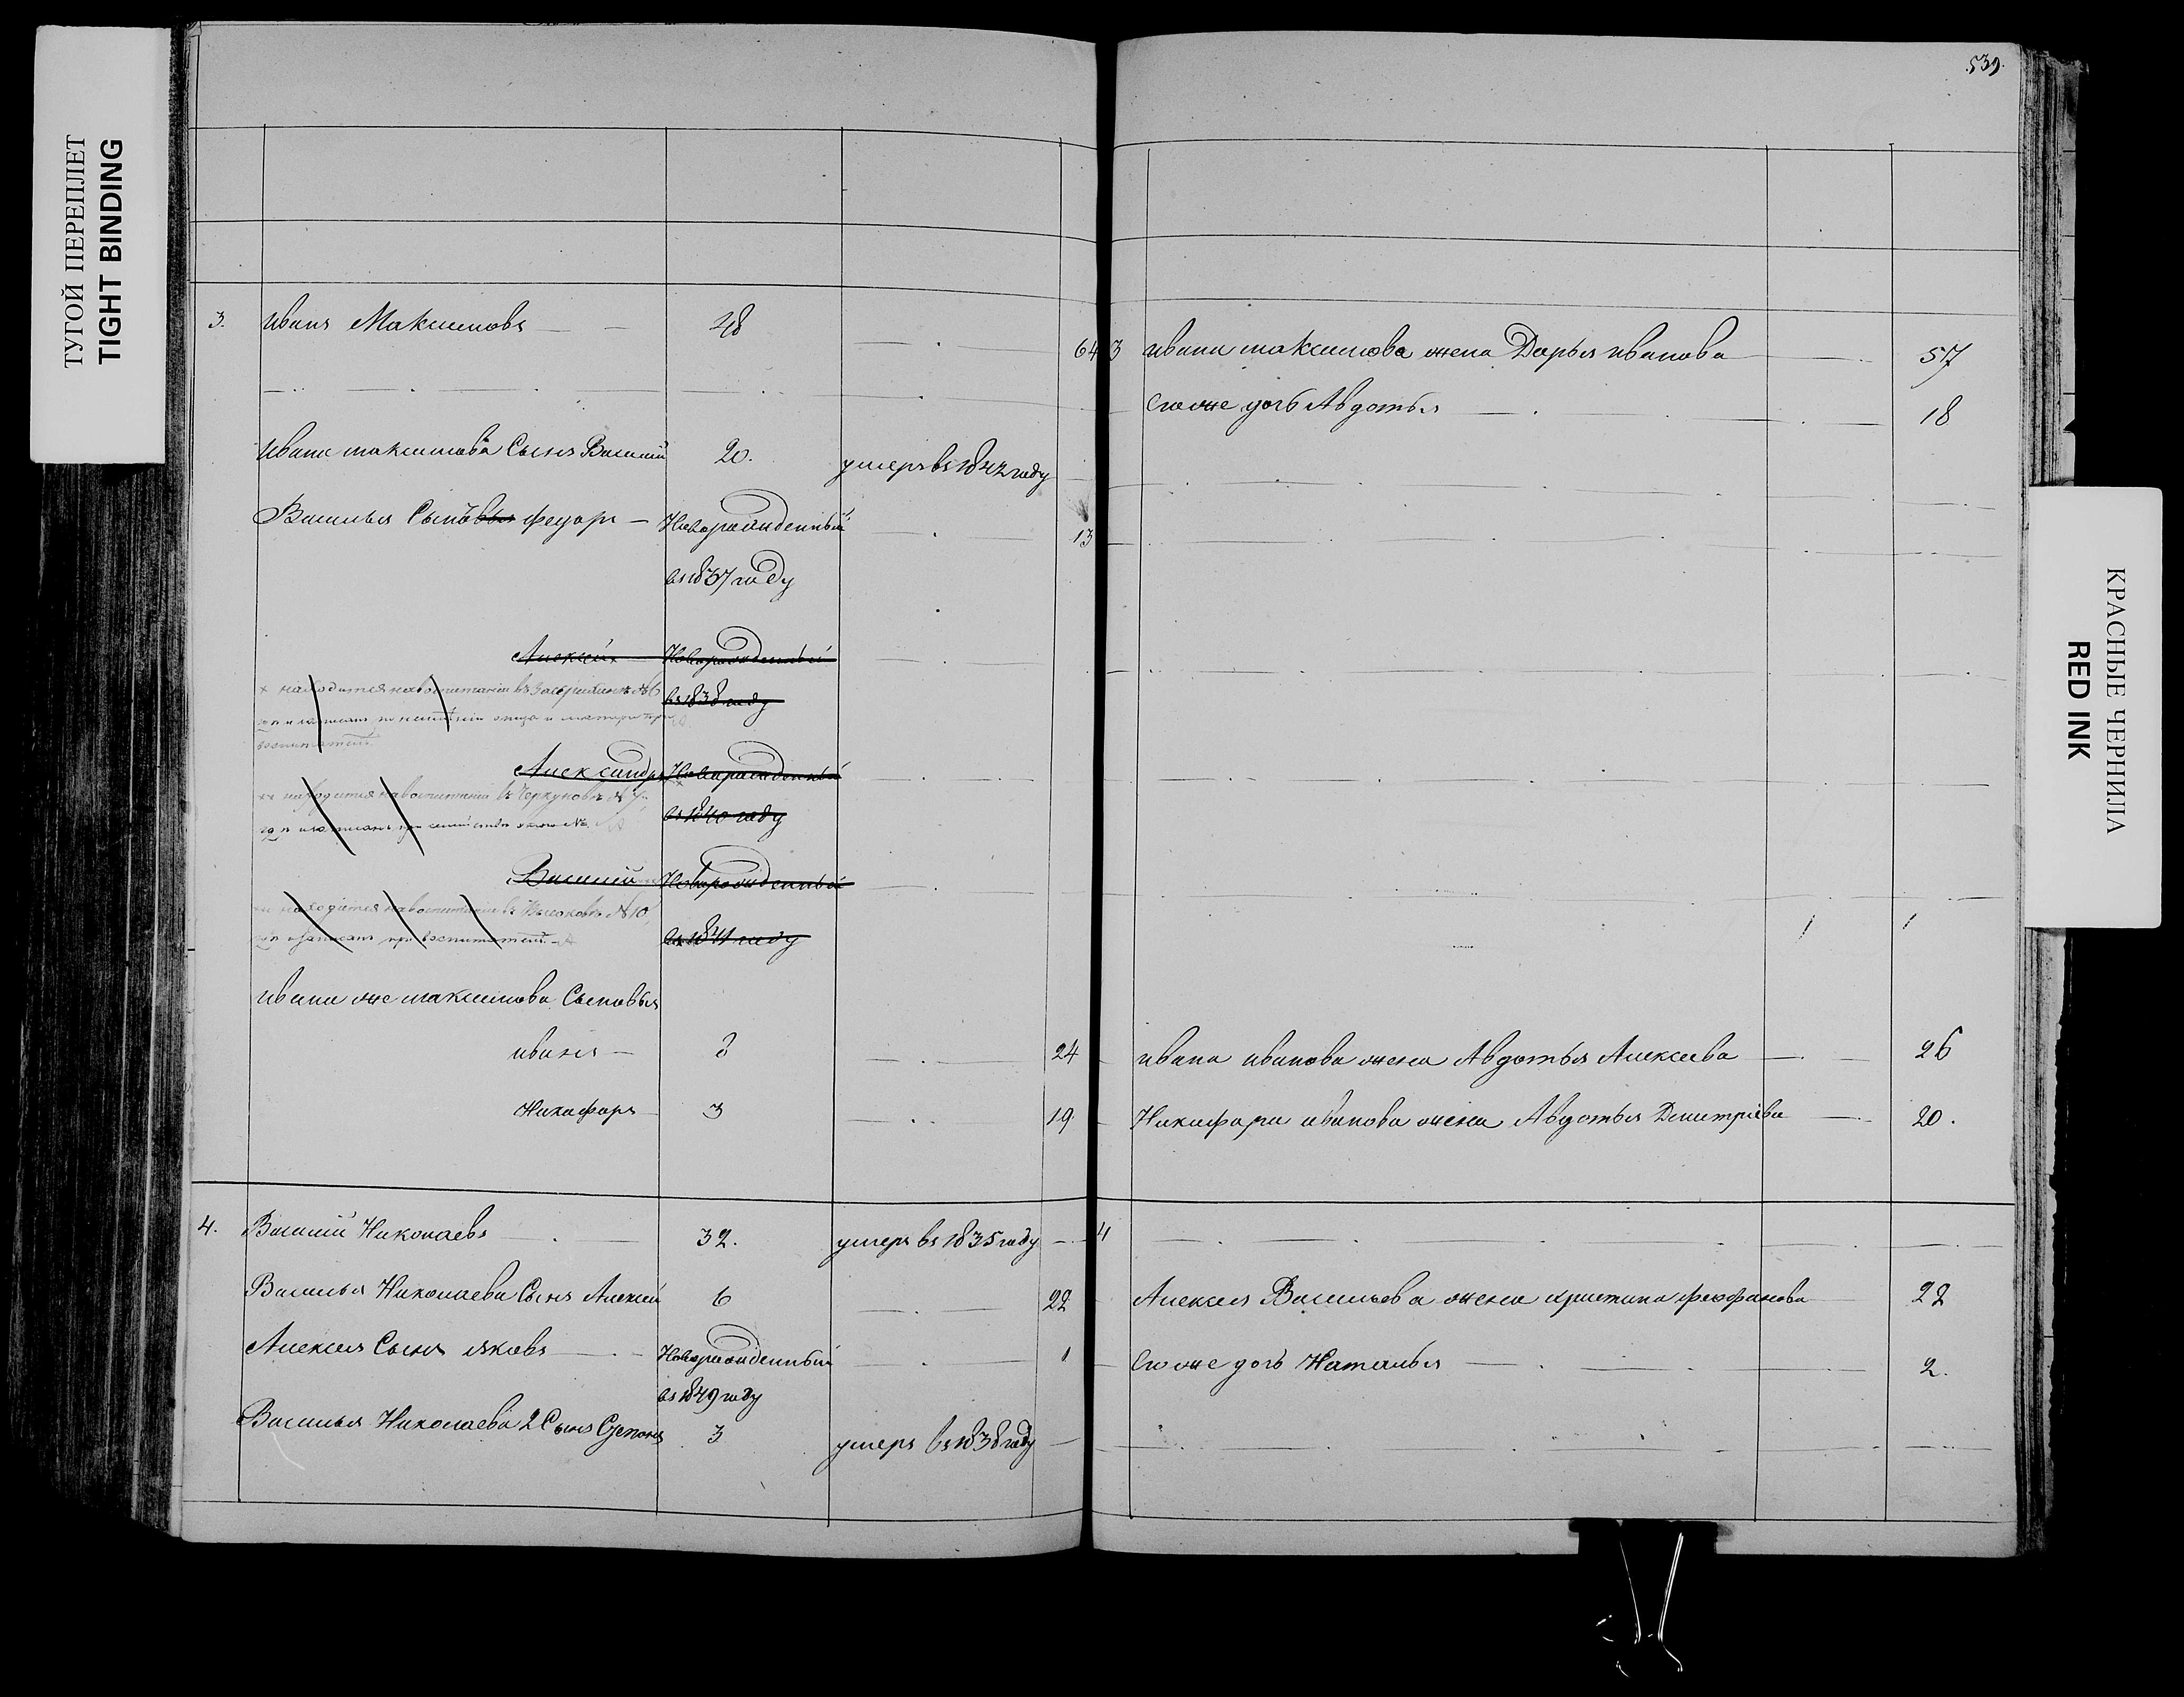 ТУГОЙ ПЕРЕПЛЕТ
TIGHT BINDING
3. иванъ Максимовъ 48 64
Ивана максимова Сынъ Василий 20. умеръ въ 1842 году
Василья Сыновья федоръ Новорожденный 13
въ 1837 году
Алексей Новорожденный
× находится на воспитании въ № 6
въ 1838 году
отца и матери
Александръ Новорожденный
×× находится на воспитании въ № 7
въ 1840 году
Василий Новорожденный
находится на воспитании въ № 10
записанъ при воспитателе въ 1841 году
ивана же максимова Сыновья
иванъ 8 24
Никифоръ 3 19
4. Василий Николаевъ 32. умеръ въ 1835 году
Василья Николаева Сынъ Алексей 6 22
Алексея Сынъ яковъ Новорожденный 1
въ 1849 году
Василья Николаева 2 Сынъ Степанъ 3 умеръ въ 1838 году
539.
3 ивана максимова жена Дарья иванова 57
его же дочь Авдотья 18
ивана иванова жена Авдотья Алексеева 26
Никифора иванова жена Авдотья Дмитріева 20.
4
Алексея Васильева жена христина феофанова 22
его же дочь Наталья 2.
КРАСНЫЕ ЧЕРНИЛА
RED INK